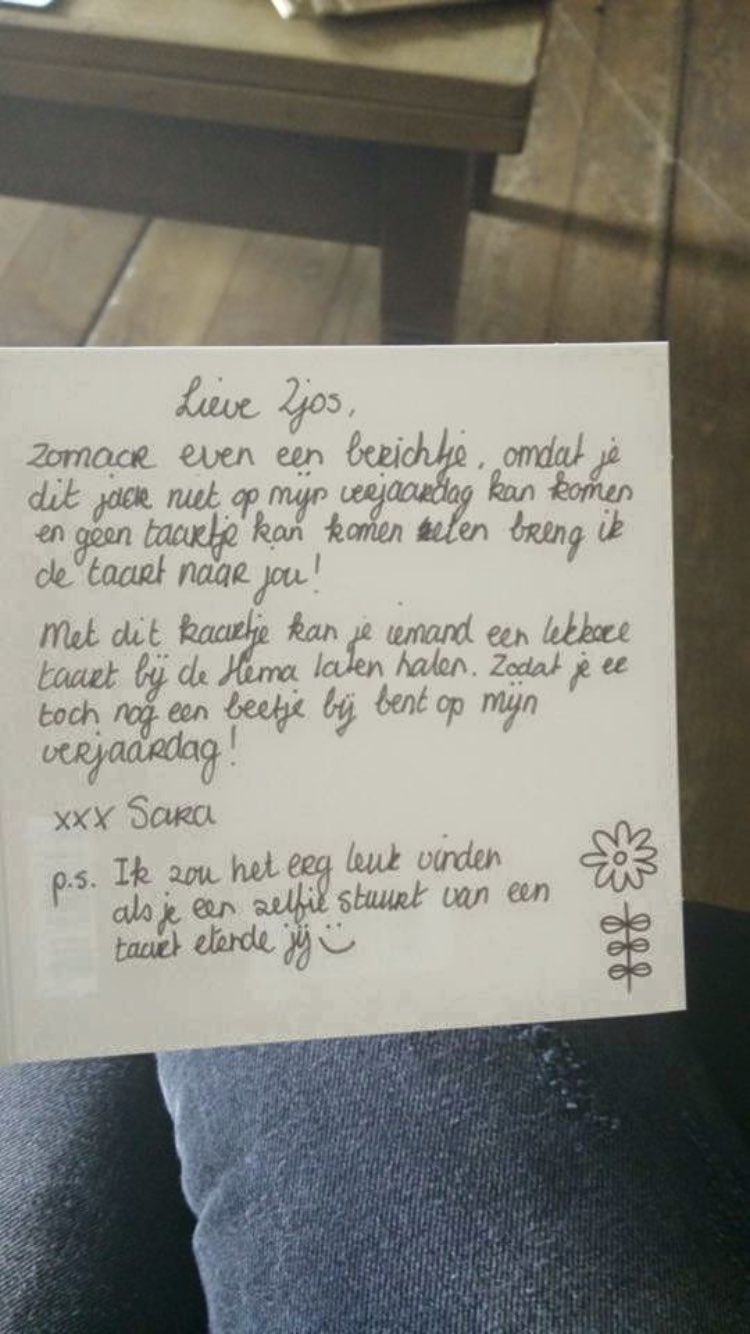 Lieve Zjos,
Zomaar even een berichtje, omdat je
dit jaar niet op mijn verjaardag kan komen
en geen taartje kan komen eten breng ik
de taart naar jou!
Met dit kaartje kan je iemand een lekkere
taart bij de Hema laten halen. Zodat je er
toch nog een beetje bij bent op mijn
verjaardag!
xxx Sara
p.s. Ik zou het erg leuk vinden
als je een selfie stuurt van een
taart etende jij :)